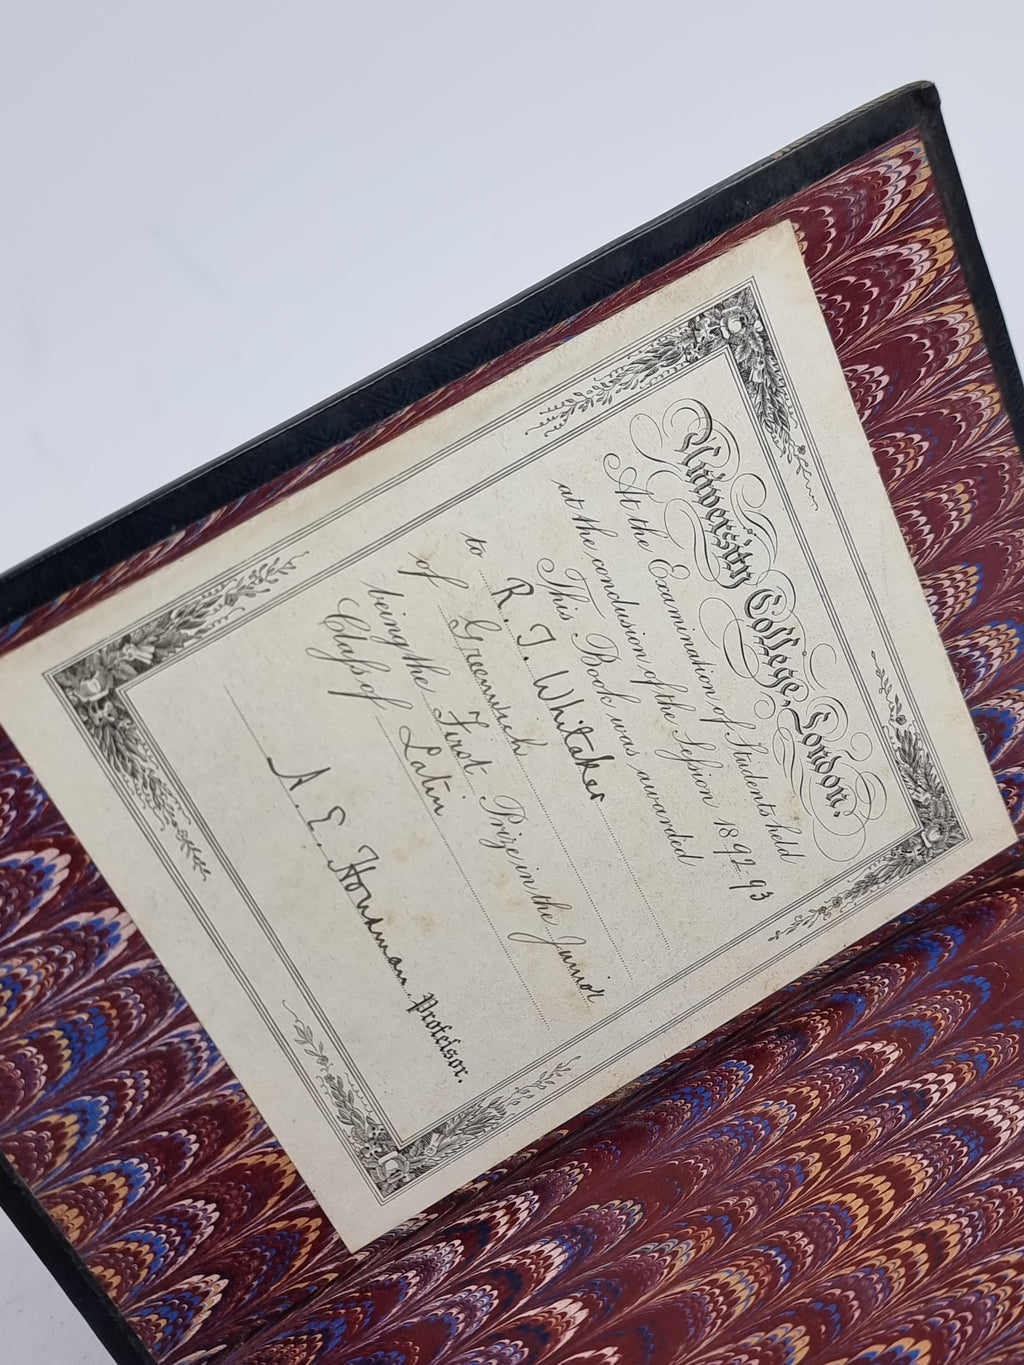 University College, London.
At the Examination of Students held
at the conclusion of the Session 1892-93
This Book was awarded
to R. T. Whitaker
of Greenwich
being the First Prize in the Junior
Class of Latin
A. E. Housman Professor.